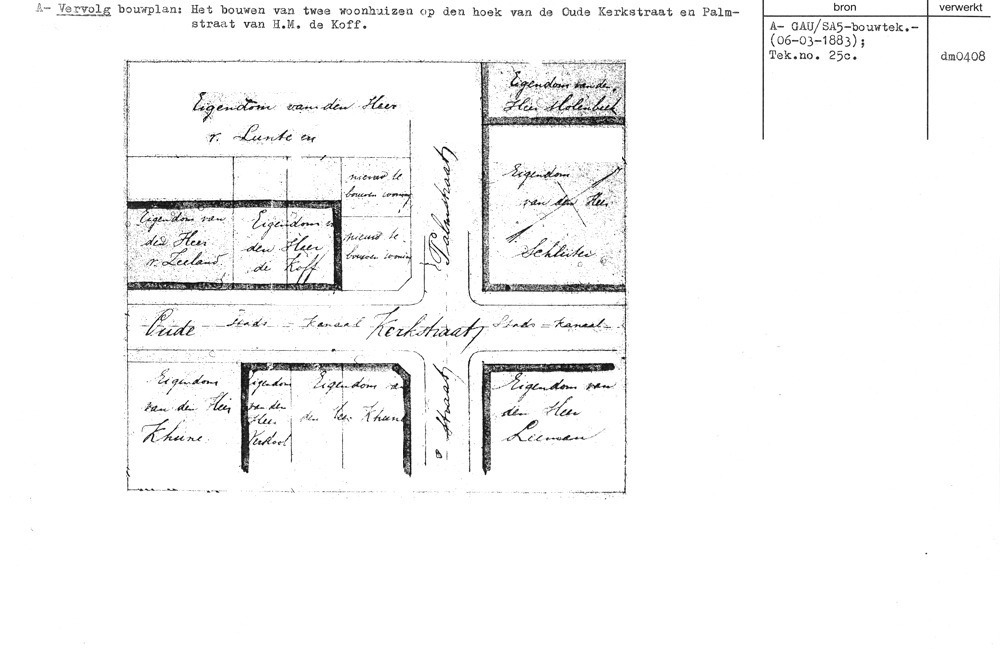 A- Vervolg bouwplan: Het bouwen van twee woonhuizen op den hoek van de Oude Kerkstraat en Palm-
straat van H.M. de Koff.
bron
verwerkt
A- GAU/SA5-bouwtek.-
(06-03-1883);
Tek.no. 25c.
dm0408
Eigendom van den Heer
v. Lunteren
Eigendom van den
Heer Molenbeek
nieuw te
bouwen woning
Eigendom
van den Heer
Schluter
Palmstraat
Eigendom van
den Heer
v. Zeeland.
Eigendom v
den Heer
de Koff
nieuw te
bouwen woning
Oude Stads = Kanaal Kerkstraat Stads = Kanaal
Eigendom
van den Heer
Khune.
Eigendom
van den
Heer
Verkool
Eigendom va
den Heer Khune
straat
Eigendom van
den Heer
Leeman